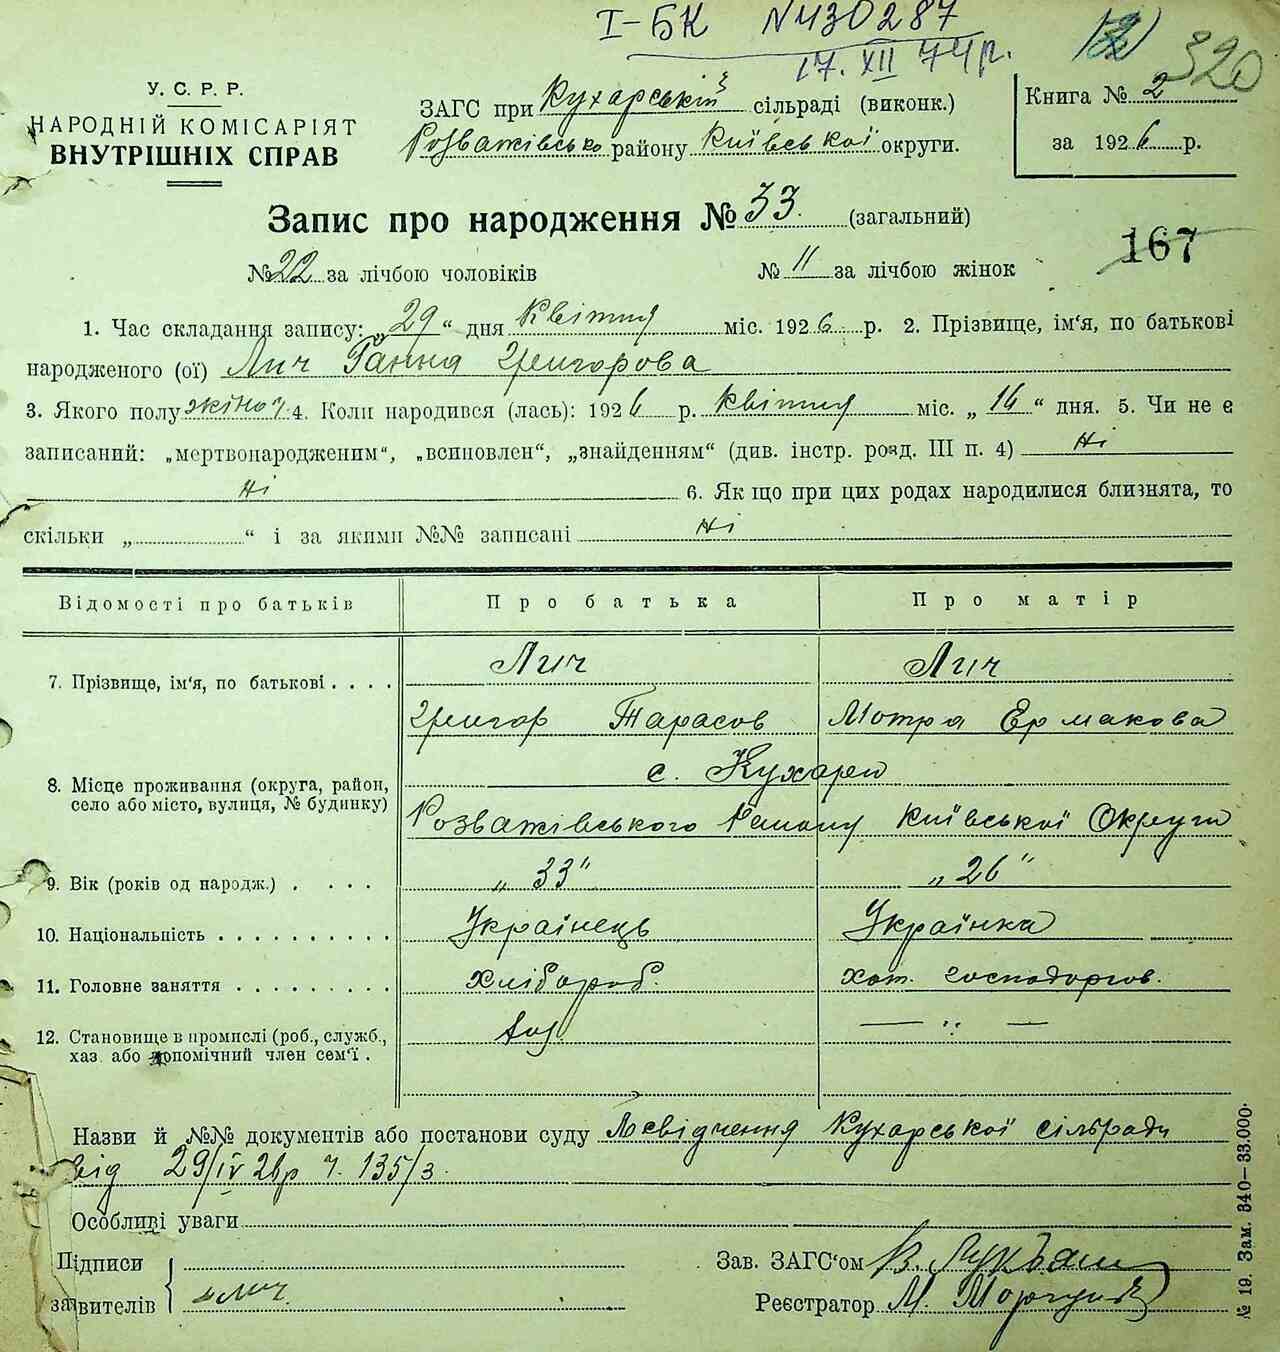 І-БК №430287
17. XII 74 р.
320
У. С. Р. Р.
НАРОДНІЙ КОМІСАРІЯТ
ВНУТРІШНІХ СПРАВ
ЗАГС при Кухарській сільраді (виконк.)
Розважівсько району Київської округи.
Книга № 2
за 1926 р.
Запис про народження № 33 (загальний)
167
№ 22 за лічбою чоловіків № 11 за лічбою жінок
1. Час складання запису: „29“ дня Квітня міс. 1926 р. 2. Прізвище, ім‘я, по батькові
народженого (ої) Лич Ганна Григорова
3. Якого полу жіноч 4. Коли народився (лась): 1926 р. Квітня міс. „16“ дня. 5. Чи не є
записаний: „мертвонародженим“, „всиновлен“, „знайденням“ (див. інстр. розд. III п. 4) Ні
Ні 6. Як що при цих родах народилися близнята, то
скільки „ “ і за якими №№ записані Ні
Відомості про батьків Про батька Про матір
7. Прізвище, ім‘я, по батькові . . . . Лич Лич
Григор Тарасов Мотря Ермакова
8. Місце проживання (округа, район, с. Кухари
село або місто, вулиця, № будинку)
Розважівського Району Київської Округи
9. Вік (років од народж.) . . . . „33“ „26“
10. Національність . . . . . . . . . . Українець Українка
11. Головне заняття . . . . . . . . . Хлібороб. хат. господоргов.
12. Становище в промислі (роб., служб.,
хаз. або допомічний член сем‘ї . — „ —
Назви й №№ документів або постанови суду Посвідчення Кухарської сільради
від 29/IV 26р ч. 135/3.
Особливі уваги
Підписи
заявителів Лич
Зав. ЗАГС‘ом В.
Реєстратор М.
№ 19. Зам. 340—33.000.